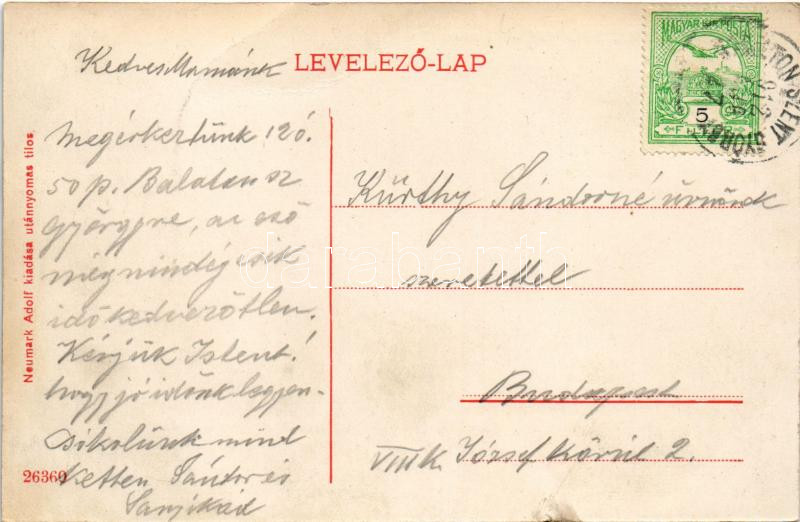 Kedves Mamánk
LEVELEZŐ-LAP
MAGYAR KIR. POSTA
5
megérkeztünk 12 ó.
50 p. Balaton sz
györgyre, az eső
még mindég esik
idő kedvezőtlen.
Kérjük Istent!
hogy jó időnk legyen.
csókolunk mind
ketten Sándor és
Kürthy Sándorné úrnőnek
szeretettel
Budapest
VIII k. József Körút 2.
Neumark Adolf kiadása utánnyomas tilos.
26360
darabanth